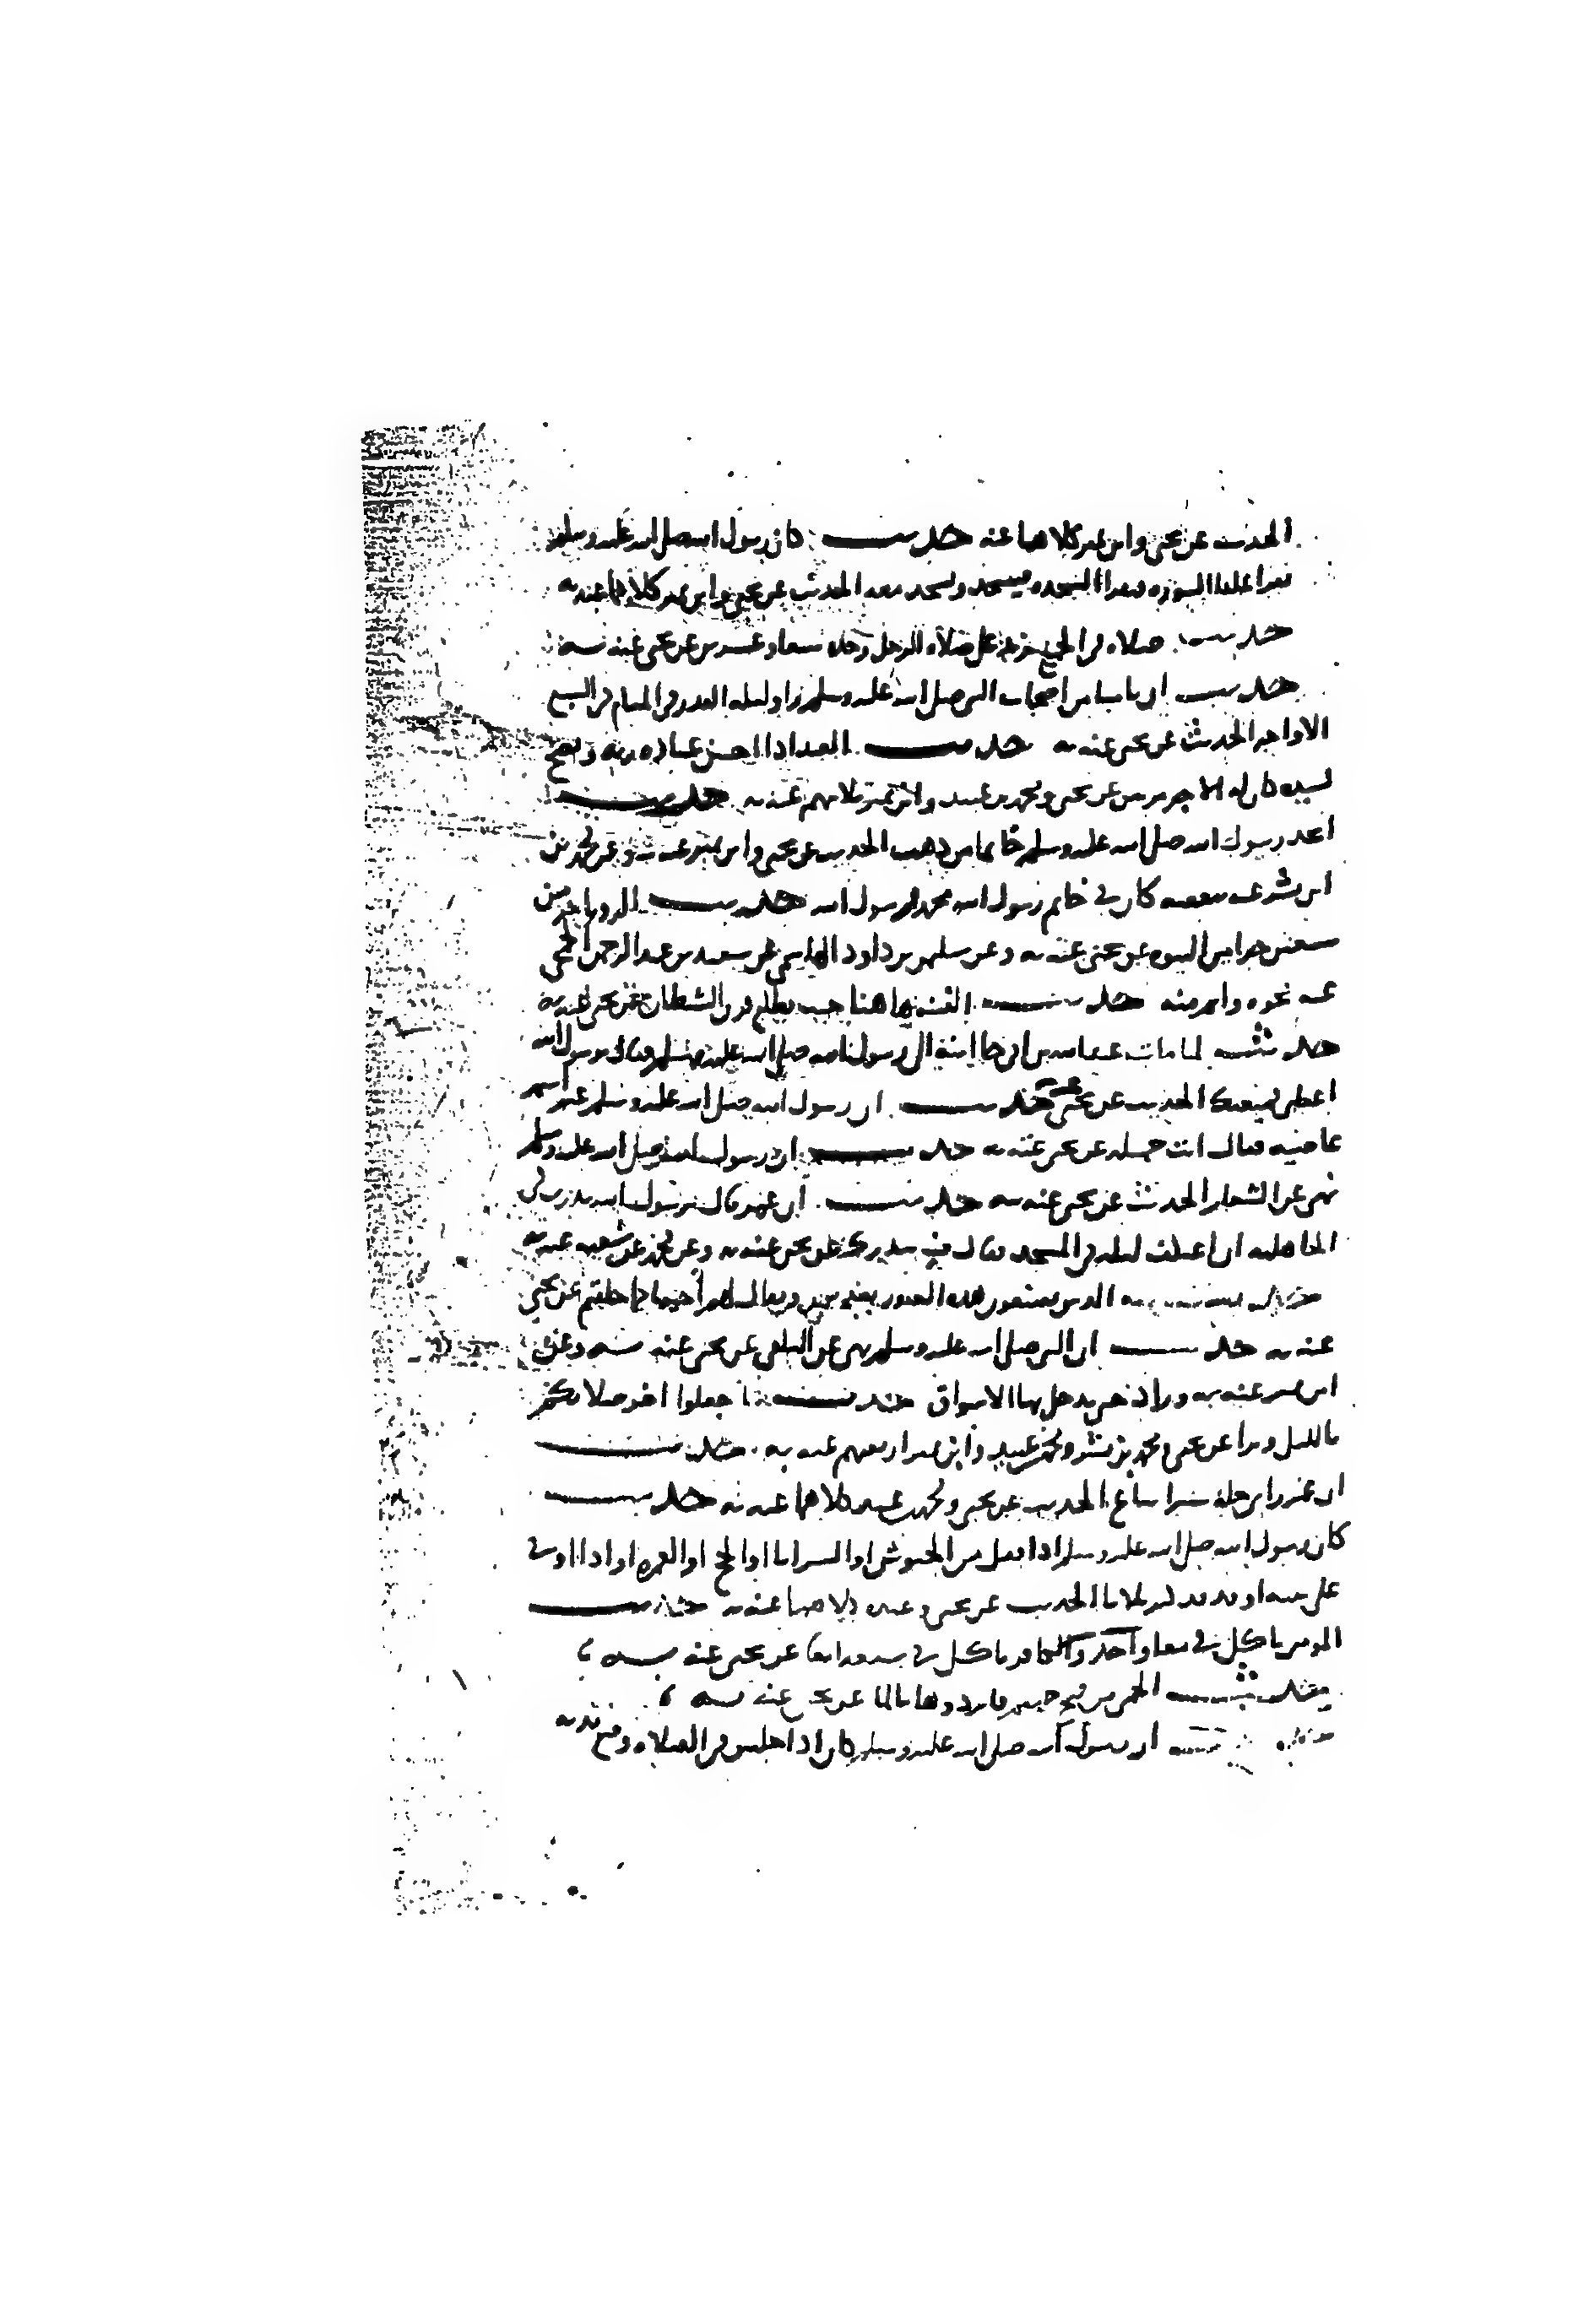 الحديث عن يحيى وابن نمير كلاهما عنه حديث كان رسول الله صلى الله عليه وسلم
يقرا علينا السوره فيقرا السجده فيسجد ونسجد معه الحديث عن يحيى وابن نمير كلاهما عنه به
حديث صلاه في الجميع تزيد على صلاه الرجل وحده سبعا وعشرين عن يحيى عنه به
حديث ان ناسا من اصحاب النبي صلى الله عليه وسلم راوا ليله القدر في المنام في السبع
الاواخر الحديث عن يحيى عنه به حديث العبد اذا احسن عباده ربه ونصح
لسيده كان له الاجر مرتين عن يحيى ومحمد بن عبيد وابن نمير ثلاثتهم عنه به حديث
اتخذ رسول الله صلى الله عليه وسلم خاتما من ذهب الحديث عن يحيى وابن نمير عنه به وعن محمد بن
بشر عنه ببعضه كان في خاتم رسول الله محمد رسول الله حديث الرويا جزء من
سبعين جزا من النبوه عن يحيى عنه به وعن سليمان بن داود الهاشمي عن سعيد بن عبد الرحمن الجمحي
عنه نحوه واتم منه حديث الفتنه هاهنا حيث يطلع قرن الشيطان عن يحيى عنه به
حديث لما مات عبد الله بن ابي جا ابنه الى رسول الله صلى الله عليه وسلم فقال يرسول الله
اعطني قميصك الحديث عن يحيى عنه حديث ان رسول الله صلى الله عليه وسلم غير اسم
عاصيه فقال انت جميله عن يحيى عنه به حديث ان رسول الله صلى الله عليه وسلم
نهى عن الشغار الحديث عن يحيى عنه به حديث ان عمر قال يرسول الله نذرت في
الجاهليه ان اعتكف ليله في المسجد فقال ف بنذرك عن يحيى عنه به وعن محمد عن شعبه عنه به
حديث الذين يصنعون هذه الصور يعذبون ويقال لهم احيوا ما خلقتم عن يحيى
عنه به حديث ان النبي صلى الله عليه وسلم نهى عن التلقي عن يحيى عنه به وعن
ابن نمير عنه به وزاد حتى يدخل بها الاسواق حديث اجعلوا اخر صلاتكم
بالليل وترا عن يحيى ومحمد بن بشر ومحمد بن عبيد وابن نمير اربعتهم عنه به حديث
ان عمر راى حله سيرا تباع الحديث عن يحيى ومحمد بن عبيد كلاهما عنه به حديث
كان رسول الله صلى الله عليه وسلم اذا قفل من الجيوش او السرايا او الحج او العمره او اذا اوفى
على ثنيه او فدفد كبر ثلاثا الحديث عن يحيى وعبده كلاهما عنه به حديث
المومن ياكل في معا واحد والكافر ياكل في سبعه امعا عن يحيى عنه به
حديث الحمى من فيح جهنم فابردوها بالما عن يحيى عنه به
حديث ان رسول الله صلى الله عليه وسلم كان اذا جلس في الصلاه وضع يديه